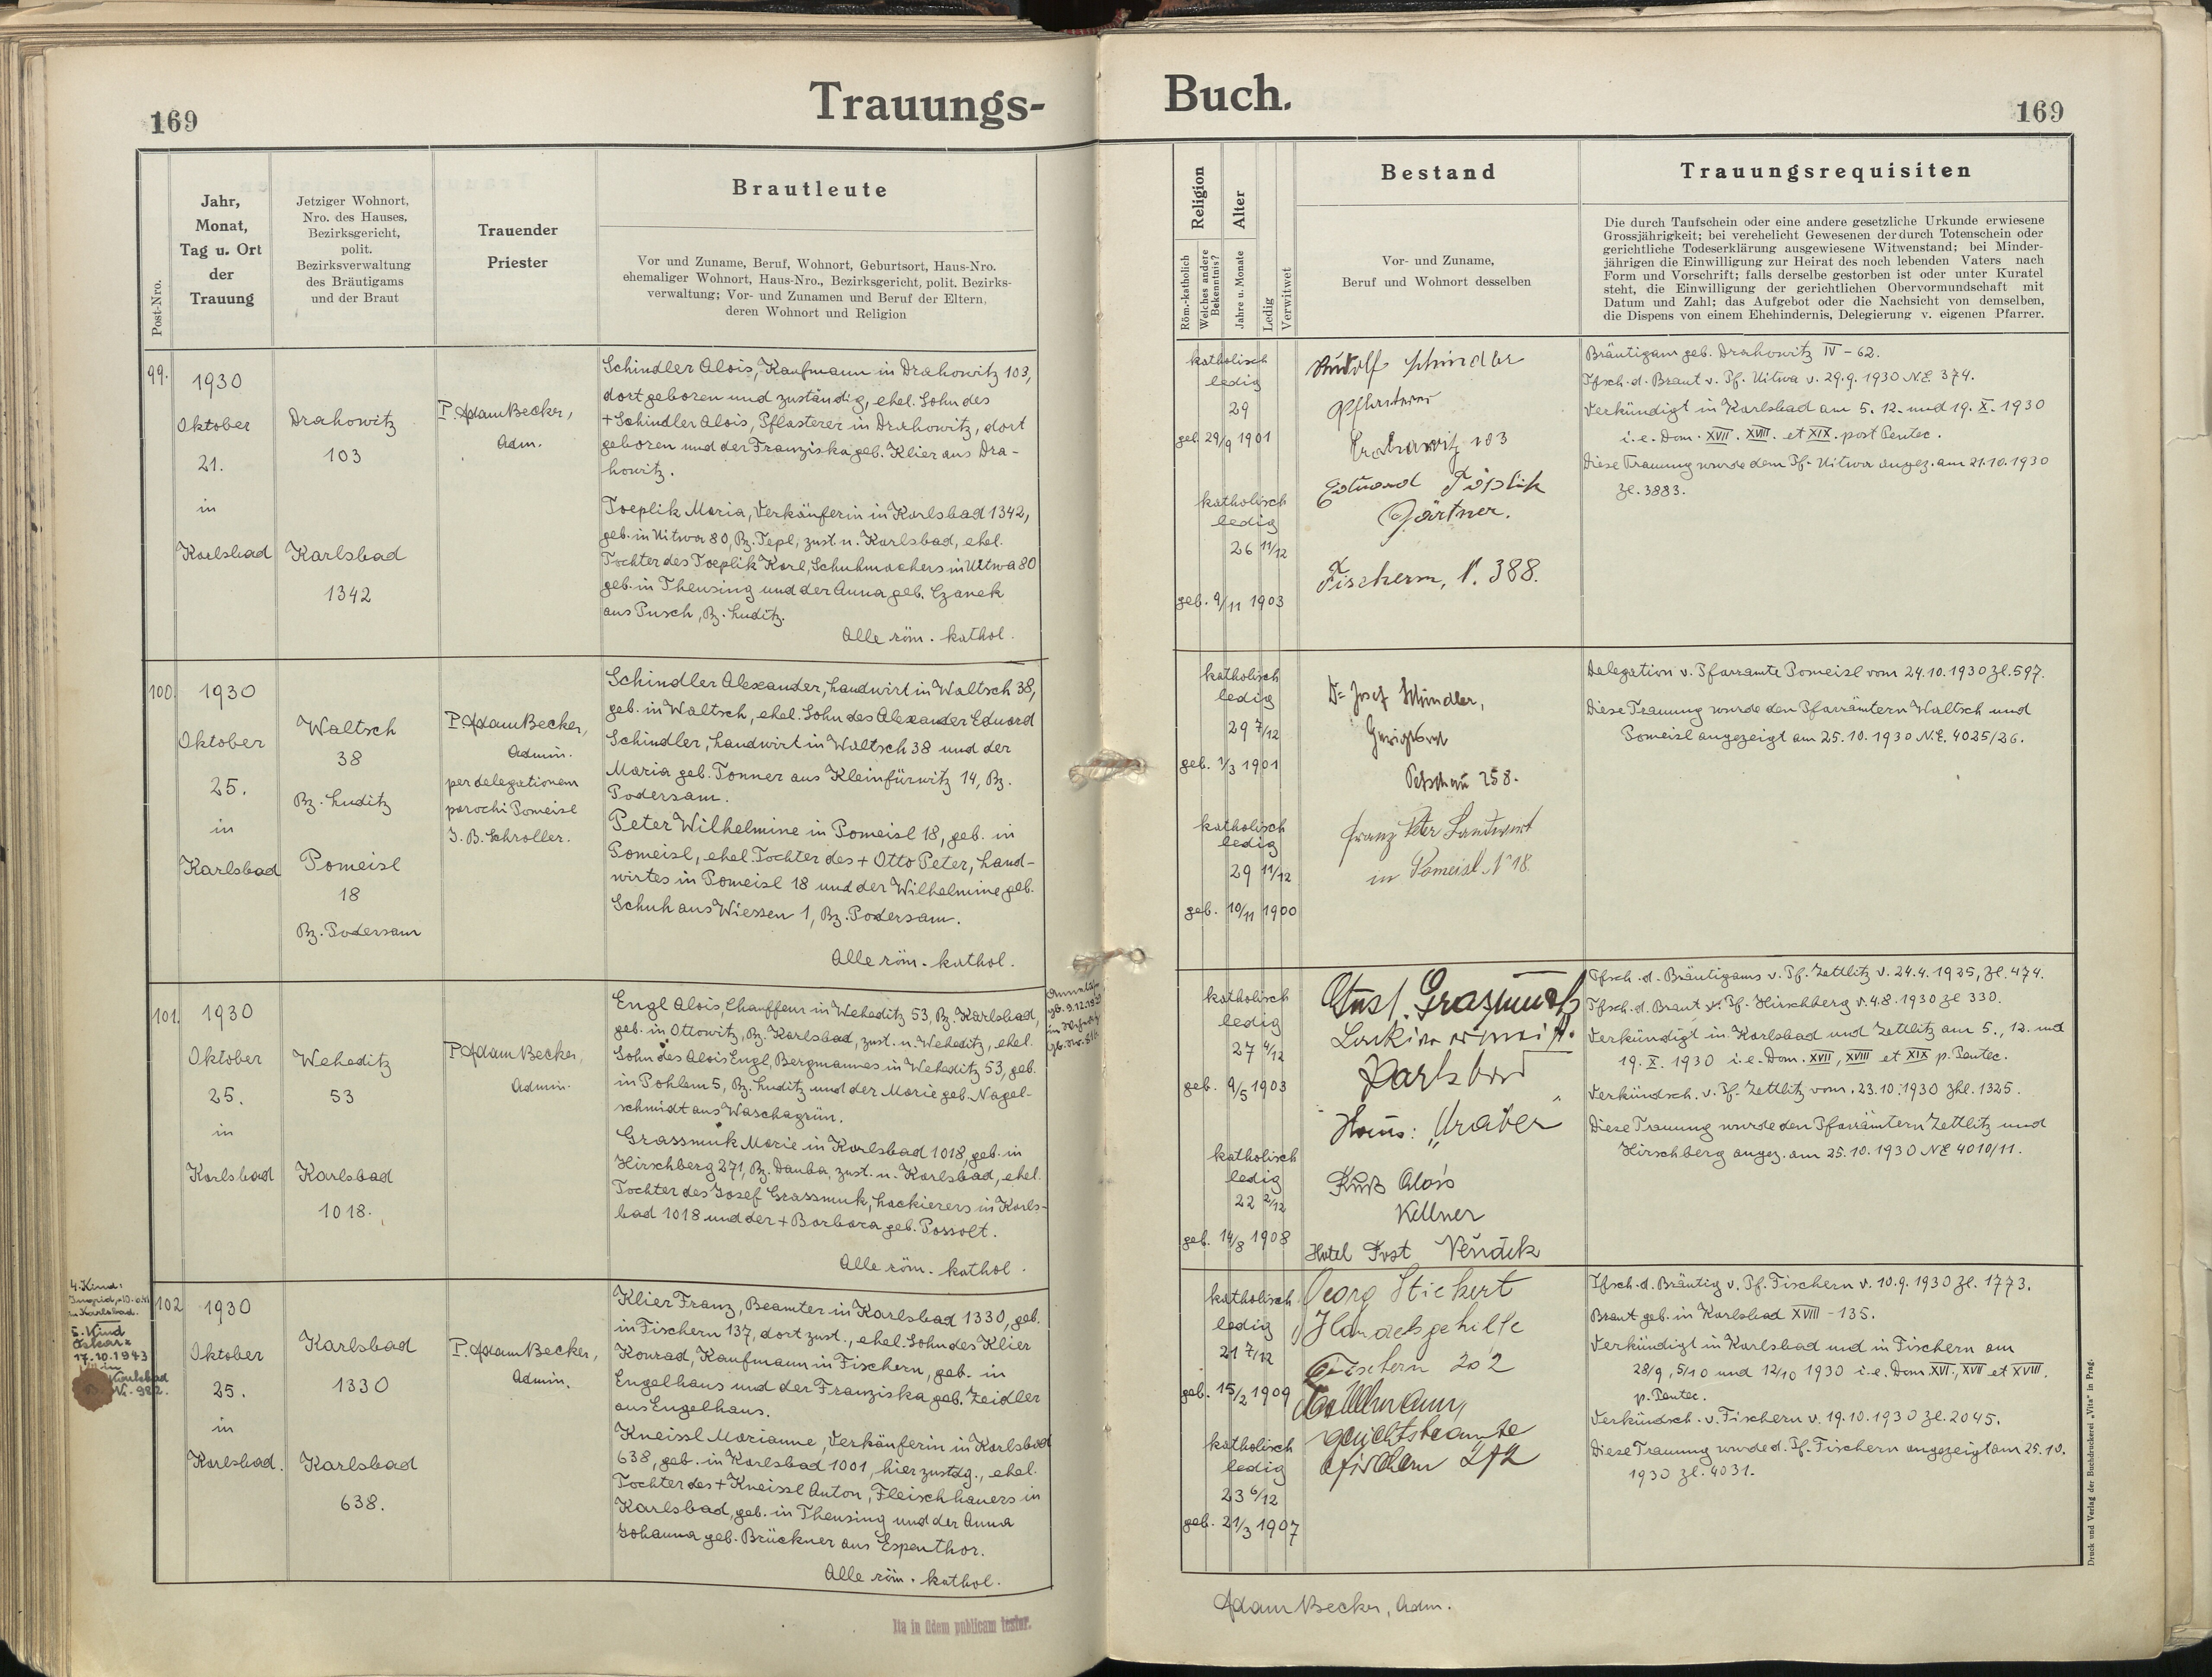 Trauungs-
169
Post-Nro.
Jahr,
Monat,
Tag u. Ort
der
Trauung
Jetziger Wohnort,
Nro. des Hauses,
Bezirksgericht,
polit.
Bezirksverwaltung
des Bräutigams
und der Braut
Trauender
Priester
Brautleute
Vor und Zuname, Beruf, Wohnort, Geburtsort, Haus-Nro.
ehemaliger Wohnort, Haus-Nro., Bezirksgericht, polit. Bezirks-
verwaltung; Vor- und Zunamen und Beruf der Eltern,
deren Wohnort und Religion
99.
1930
Oktober
21.
in
Karlsbad
Drahowitz
103
Karlsbad
1342
P. Adam Becker,
Adm.
Schindler Alois, Kaufmann in Drahowitz 103,
dort geboren und zuständig, ehel. Sohn des
+ Schindler Alois, Pflasterer in Drahowitz, dort
geboren und der Franziska geb. Klier aus Dra-
howitz.
Toeplik Maria, Verkäuferin in Karlsbad 1342,
geb. in Uitwa 80, Bz. Tepl, zust. n. Karlsbad, ehel.
Tochter des Toeplik Karl, Schuhmachers in Uitwa 80
geb. in Theusing und der Anna geb. Czanek
aus Pusch, Bz. Luditz.
Alle röm. kathol.
100.
1930
Oktober
25.
in
Karlsbad
Waltsch
38
Bz. Luditz
Pomeisl
18
Bz. Podersam
P. Adam Becker,
Admin.
per delegationem
parochi Pomeisl
J. B. Schroller.
Schindler Alexander, Landwirt in Waltsch 38,
geb. in Waltsch, ehel. Sohn des Alexander Eduard
Schindler, Landwirt in Waltsch 38 und der
Maria geb. Tonner aus Kleinfürwitz 14, Bz.
Podersam.
Peter Wilhelmine in Pomeisl 18, geb. in
Pomeisl, ehel. Tochter des + Otto Peter, Land-
wirtes in Pomeisl 18 und der Wilhelmine geb.
Schuh aus Wiessen 1, Bz. Podersam.
Alle röm. kathol.
101.
1930
Oktober
25.
in
Karlsbad
Weheditz
53
Karlsbad
1018.
P. Adam Becker,
Admin.
Engl Alois, Chauffeur in Weheditz 53, Bz. Karlsbad,
geb. in Ottowitz, Bz. Karlsbad, zust. n. Weheditz, ehel.
Sohn des Alois Engl, Bergmannes in Weheditz 53, geb.
in Pohlem 5, Bz. Luditz und der Marie geb. Nagel-
schmidt aus Waschagrün.
Grassmuk Marie in Karlsbad 1018, geb. in
Hirschberg 271, Bz. Dauba, zust. n. Karlsbad, ehel.
Tochter des Josef Grassmuk, Lackierers in Karls-
bad 1018 und der + Barbara geb. Possolt.
Alle röm. kathol.
4. Kind:
Ingrid,
in Karlsbad.
5. Kind
17.10.1943
in
Karlsbad
102
1930
Oktober
25.
in
Karlsbad.
Karlsbad
1330
Karlsbad
638.
P. Adam Becker,
Admin.
Klier Franz, Beamter in Karlsbad 1330, geb.
in Fischern 137, dort zust., ehel. Sohn des Klier
Konrad, Kaufmann in Fischern, geb. in
Engelhaus und der Franziska geb. Zeidler
aus Engelhaus.
Kneissl Marianne, Verkäuferin in Karlsbad
638, geb. in Karlsbad 1001, hier zustdg., ehel.
Tochter des + Kneissl Anton, Fleischhauers in
Karlsbad, geb. in Theusing und der Anna
Johanna geb. Brückner aus Espenthor.
Alle röm. kathol.
Ita in fidem publicam testor.
Buch.
169
Religion
Röm.-katholisch
Welches andere
Bekenntnis?
Alter
Jahre u. Monate
Ledig
Verwitwet
Bestand
Vor- und Zuname,
Beruf und Wohnort desselben
Trauungsrequisiten
Die durch Taufschein oder eine andere gesetzliche Urkunde erwiesene
Grossjährigkeit; bei verehelicht Gewesenen der durch Totenschein oder
gerichtliche Todeserklärung ausgewiesene Witwenstand; bei Minder-
jährigen die Einwilligung zur Heirat des noch lebenden Vaters nach
Form und Vorschrift; falls derselbe gestorben ist oder unter Kuratel
steht, die Einwilligung der gerichtlichen Obervormundschaft mit
Datum und Zahl; das Aufgebot oder die Nachsicht von demselben,
die Dispens von einem Ehehindernis, Delegierung v. eigenen Pfarrer.
katholisch
ledig
29
geb. 29/9 1901
katholisch
ledig
26 11/12
geb. 9/11 1903
Rudolf Schindler
Pflasterer
Drahowitz 103
Eduard Töplik
Gärtner.
Fischern, N. 388.
Bräutigam geb. Drahowitz IV - 62.
Tfsch. d. Braut v. Pf. Uitwa v. 29.9. 1930 N.E. 374.
Verkündigt in Karlsbad am 5. 12. und 19. X. 1930
i. e. Dom. XVII. XVIII. et XIX. post Pentec.
Diese Trauung wurde dem Pf. Uitwa angez. am 21.10.1930
Zl. 3883.
katholisch
ledig
29 7/12
geb. 1/3 1901
katholisch
ledig
29 11/12
geb. 10/11 1900
Dr Josef Schindler,
Petschau 258.
Franz Peter Landwirt
in Pomeisl N° 18.
Delegation v. Pfarramte Pomeisl vom 24.10.1930 Zl. 597.
Diese Trauung wurde den Pfarrämtern Waltsch und
Pomeisl angezeigt am 25.10.1930 N.E. 4025/26.
katholisch
ledig
27 4/12
geb. 9/5 1903
katholisch
ledig
22 2/12
geb. 14/8 1908
Karlsbad
Haus:
Alois
Kellner
Hotel Post
Tfsch. d. Bräutigams v. Pf. Zettlitz v. 24.4. 1925, Zl. 474.
Tfsch. d. Braut v. Pf. Hirschberg v. 4.8. 1930 Zl 330.
Verkündigt in Karlsbad und Zettlitz am 5., 12. und
19. X. 1930 i. e. Dom. XVII, XVIII et XIX p. Pentec.
Verkündsch. v. Pf. Zettlitz vom. 23.10.1930 Zhl. 1325.
Diese Trauung wurde den Pfarrämtern Zettlitz und
Hirschberg angez. am 25.10.1930 NE 4010/11.
katholisch
ledig
21 7/12
geb. 15/2 1909
katholisch
ledig
23 6/12
geb. 21/3 1907
Georg Stickert
Handelsgehilfe
Fischern 202
Gerichtsbeamte
Fischern 272
Tfsch. d. Bräutig v. Pf. Fischern v. 10.9. 1930 Zl. 1773.
Braut geb. in Karlsbad XVIII - 135.
Verkündigt in Karlsbad und in Fischern am
28/9, 5/10 und 12/10 1930 i. e. Dom. XVI, XVII et XVIII.
p. Pentec.
Verkündsch. v. Fischern v. 19.10.1930 Zl. 2045.
Diese Trauung wurde d. Pf. Fischern angezeigt am 25.10.
1930 Zl. 4031.
Adam Becker, Adm.
Druck und Verlag der Buchdruckerei „Vita" in Prag.